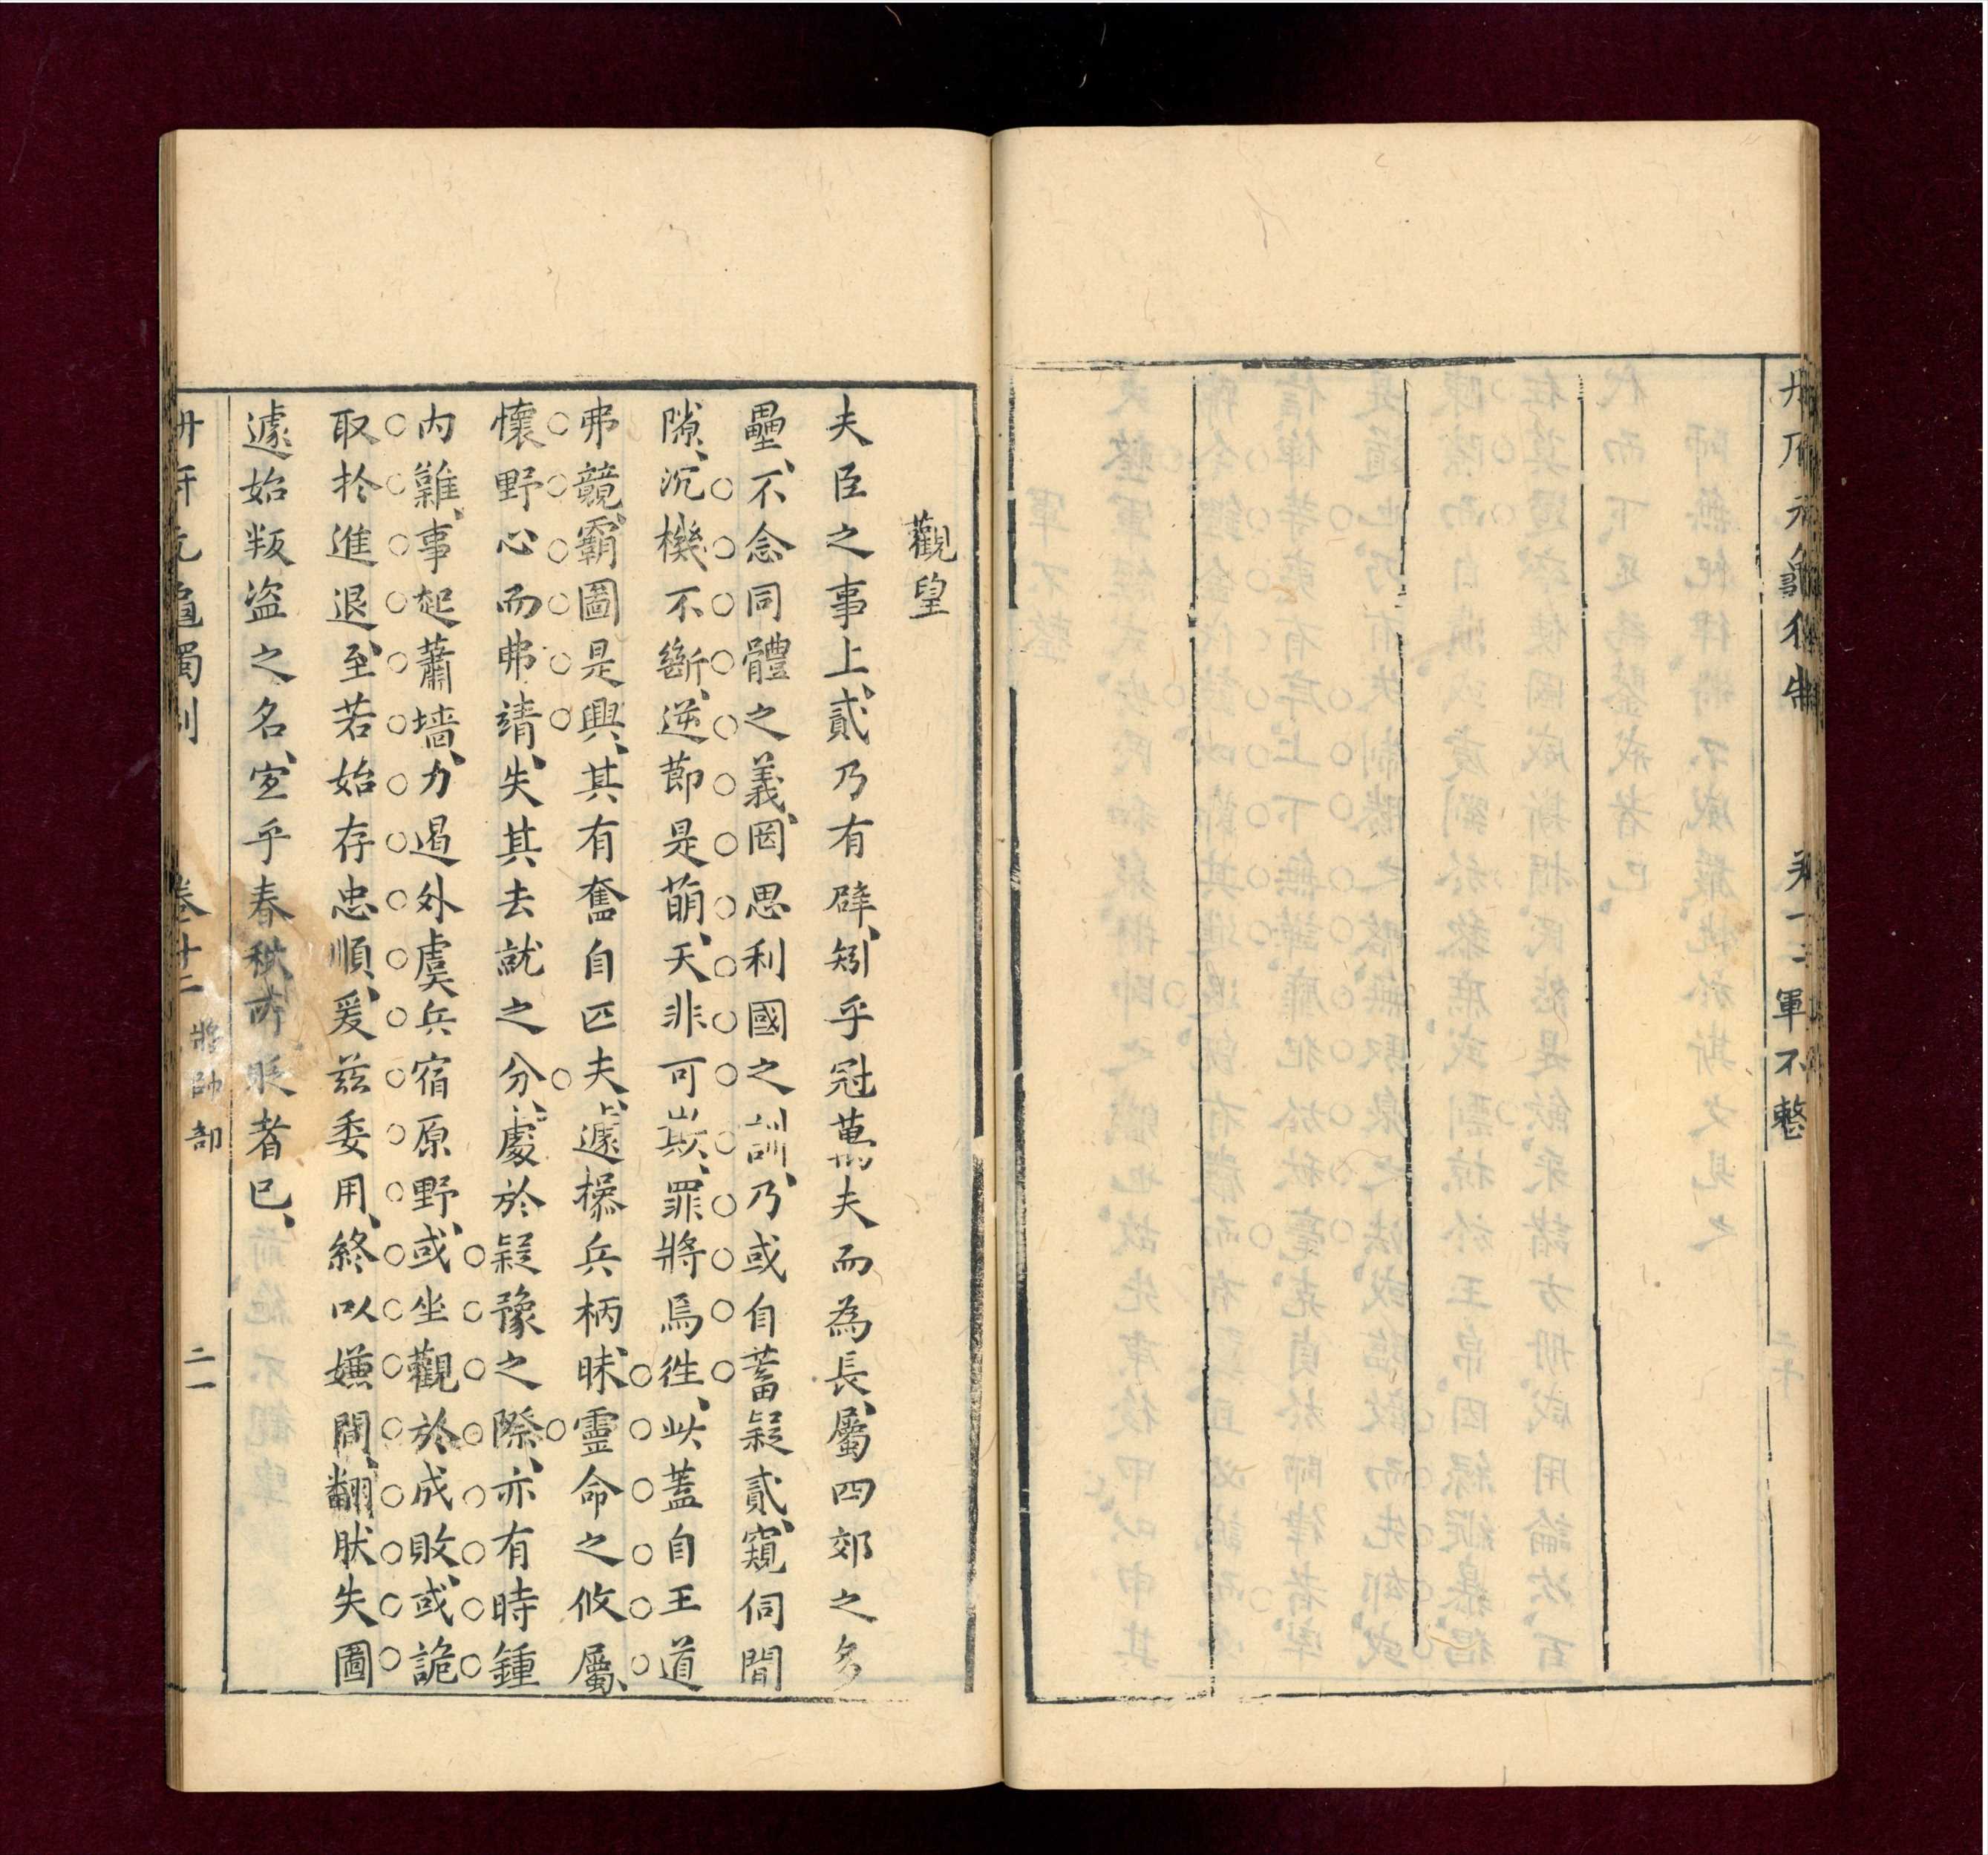 軍不整
觀望
夫臣之事上貳乃有辟矧乎冠萬夫而為長屬四郊之多
壘不念同體之義罔思利國之訓乃或自蓄疑貳窺伺間
隙沉機不斷逆節是萌天非可欺罪將焉往此蓋自王道
弗競霸圖是興其有奮自匹夫遽操兵柄昧靈命之攸屬
懷野心而弗靖失其去就之分處於疑豫之際亦有時鍾
內難事起蕭墻力遏外虞兵宿原野或坐觀於成敗或詭
取扵進退至若始存忠順爰茲委用終以嫌間翻肰失圖
遽始叛盜之名寔乎春秋所貶者已
卷廿二 將帥部 二一